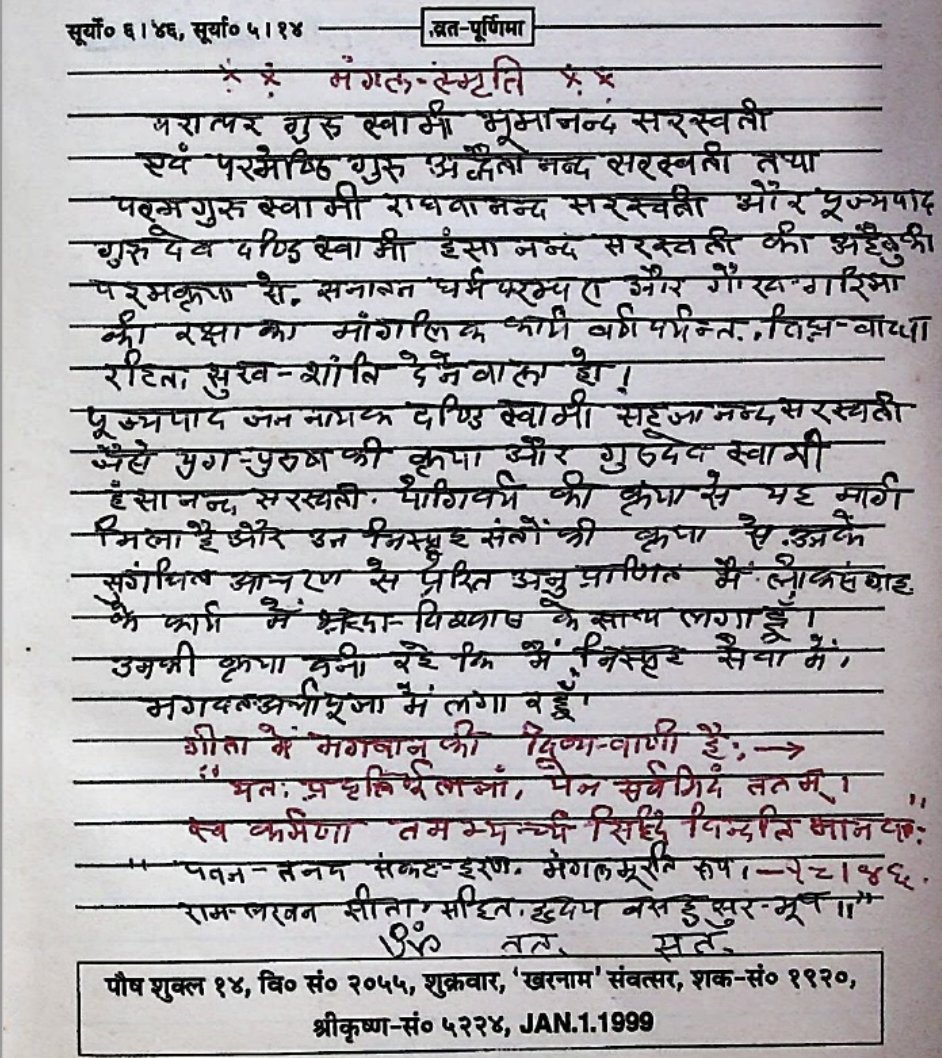 सूर्यो० ६।४६, सूर्या० ५।१४ व्रत-पूर्णिमा
मंगल-स्मृति
परात्पर गुरु स्वामी भूमानन्द सरस्वती
एवं परमेष्ठि गुरु अद्वैतानन्द सरस्वती तथा
परमगुरु स्वामी राघवानन्द सरस्वती और पूज्यपाद
गुरुदेव दण्डि स्वामी हंसानन्द सरस्वती की अहैतुकी
परमकृपा से, सनातन धर्म परम्परा और गौरव-गरिमा
की रक्षा का मांगलिक कार्य वर्ष पर्यन्त, विघ्न-बाधा
रहित, सुख-शांति देने वाला हो!
पूज्यपाद जन नायक दण्डि स्वामी सहजानन्द सरस्वती
जैसे युग-पुरुष की कृपा और गुरुदेव स्वामी
हंसानन्द सरस्वती योगिवर्य की कृपा से यह मार्ग
मिला है और उन निस्पृह संतों की कृपा से, उनके
आचरण से प्रेरित अनुप्राणित मैं लोकसंग्रह
के कार्य में श्रद्धा-विश्वास के साथ लगा हूँ।
उनकी कृपा बनी रहे कि मैं निस्पृह सेवा में,
भगवत् पूजा में लगा रहूँ।
गीता में भगवान् की दिव्य-वाणी है: →
"यत: प्रवृत्तिर्भूतानां, येन सर्वमिदं ततम्।
स्व कर्मणा तमभ्यर्च्य सिद्धिं विन्दति मानव:"
"पवन-तनय संकट-हरण, मंगल मूरति रूप। —१८।४६
राम-लखन सीता सहित, हृदय बसहु सुर-भूप॥"
ॐ तत् सत्
पौष शुक्ल १४, वि० सं० २०५५, शुक्रवार, 'खरनाम' संवत्सर, शक-सं० १९२०,
श्रीकृष्ण-सं० ५२२४, JAN.1.1999